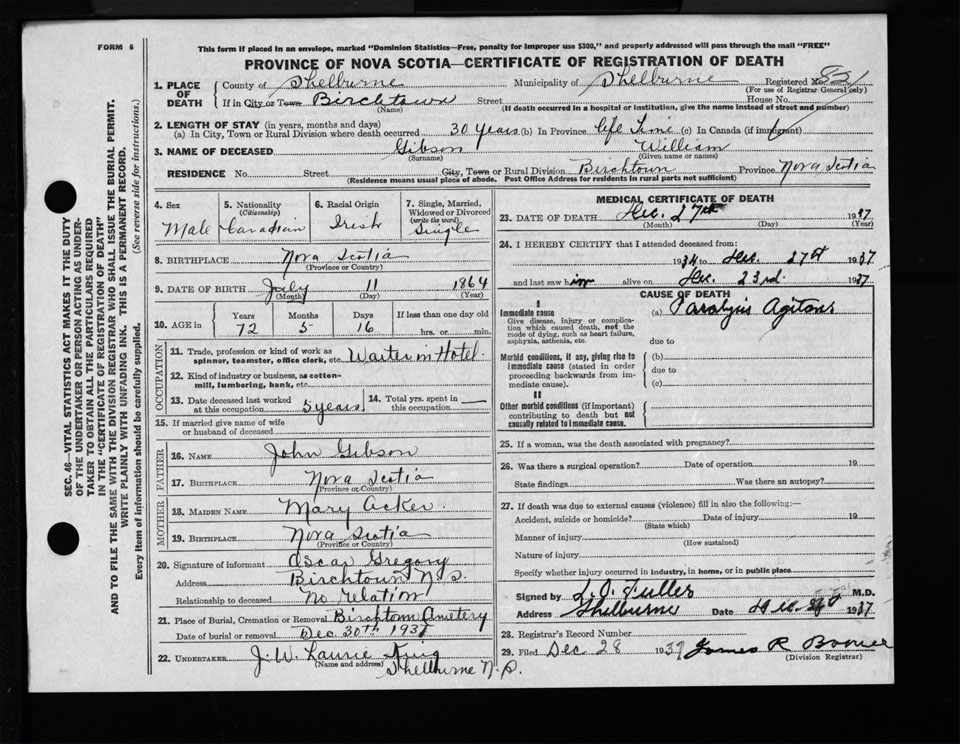 FORM 6
This form if placed in an envelope, marked "Dominion Statistics—Free, penalty for improper use $300," and properly addressed will pass through the mail "FREE"
PROVINCE OF NOVA SCOTIA—CERTIFICATE OF REGISTRATION OF DEATH
1. PLACE OF DEATH
County of Shelburne Municipality of Shelburne Registered No.
(For use of Registrar General only)
If in City or Town Birchtown Street House No.
(Name) (If death occurred in a hospital or institution, give the name instead of street and number)
2. LENGTH OF STAY (in years, months and days)
(a) In City, Town or Rural Division where death occurred 30 years (b) In Province Life Time (c) In Canada (if immigrant)
3. NAME OF DECEASED Gibson William
(Surname) (Given name or names)
RESIDENCE No. Street City, Town or Rural Division Birchtown Province Nova Scotia
(Residence means usual place of abode. Post Office Address for residents in rural parts not sufficient)
4. Sex 5. Nationality (Citizenship) 6. Racial Origin 7. Single, Married, Widowed or Divorced (write the word)
Male Canadian Irish Single
8. BIRTHPLACE Nova Scotia
(Province or Country)
9. DATE OF BIRTH July 11 1864
(Month) (Day) (Year)
10. AGE in Years Months Days If less than one day old
72 5 16 hrs. or min.
OCCUPATION
11. Trade, profession or kind of work as spinner, teamster, office clerk, etc. Waiter in Hotel.
12. Kind of industry or business, as cotton-mill, lumbering, bank, etc.
13. Date deceased last worked at this occupation 5 years 14. Total yrs. spent in this occupation —
15. If married give name of wife or husband of deceased
FATHER
16. NAME John Gibson
17. BIRTHPLACE Nova Scotia
(Province or Country)
MOTHER
18. MAIDEN NAME Mary Acker.
19. BIRTHPLACE Nova Scotia
(Province or Country)
20. Signature of informant Oscar Gregory
Address Birchtown N.S.
Relationship to deceased No Relation
21. Place of Burial, Cremation or Removal Birchtown Cemetery
Date of burial or removal Dec 30th 1937
22. UNDERTAKER J. W. Laurie King
(Name and address) Shelburne N.S.
MEDICAL CERTIFICATE OF DEATH
23. DATE OF DEATH Dec. 27th 1937
(Month) (Day) (Year)
24. I HEREBY CERTIFY that I attended deceased from:
1934 to Dec. 27th 1937
and last saw him alive on Dec. 23rd 1937
CAUSE OF DEATH
I
Immediate cause
Give disease, injury or complication which caused death, not the mode of dying, such as heart failure, asphyxia, asthenia, etc.
(a) Paralysis Agitans
due to
Morbid conditions, if any, giving rise to immediate cause (stated in order proceeding backwards from immediate cause).
(b)
due to
(c)
II
Other morbid conditions (if important) contributing to death but not causally related to immediate cause.
25. If a woman, was the death associated with pregnancy?
26. Was there a surgical operation? Date of operation 19
State findings Was there an autopsy?
27. If death was due to external causes (violence) fill in also the following:—
Accident, suicide or homicide? Date of injury 19
(State which)
Manner of injury
(How sustained)
Nature of injury
Specify whether injury occurred in industry, in home, or in public place
Signed by L.O. Fuller M.D.
Address Shelburne Date Dec. 1937
28. Registrar's Record Number
29. Filed Dec 28 1937 James R Bower
(Division Registrar)
SEC. 46—VITAL STATISTICS ACT MAKES IT THE DUTY
OF THE UNDERTAKER OR PERSON ACTING AS UNDER-
TAKER TO OBTAIN ALL THE PARTICULARS REQUIRED
IN THE "CERTIFICATE OF REGISTRATION OF DEATH"
AND TO FILE THE SAME WITH THE DIVISION REGISTRAR WHO SHALL ISSUE THE BURIAL PERMIT.
WRITE PLAINLY WITH UNFADING INK. THIS IS A PERMANENT RECORD.
Every item of information should be carefully supplied. (See reverse side for instructions.)